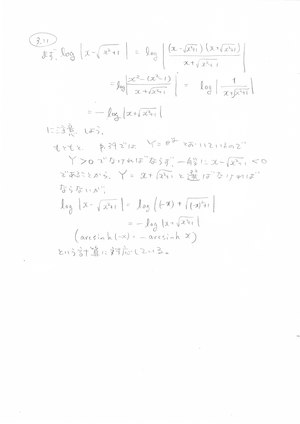 3.11
まず、log|x-√(x²+1)| = log|(x-√(x²+1))(x+√(x²+1)) / (x+√(x²+1))|
= log|(x²-(x²+1)) / (x+√(x²+1))| = log|1 / (x+√(x²+1))|
= -log|x+√(x²+1)|
に注意しよう。
もともと では Y=e^y とおいているので
Y>0 でなければならず、一般に x-√(x²+1)<0
であることから、Y=x+√(x²+1) と選ばなければ
ならないが、
log|x-√(x²+1)| = log|(-x)+√((-x)²+1)|
= -log|x+√(x²+1)|
(arcsinh(-x) = -arcsinh x)
という計算に対応している。